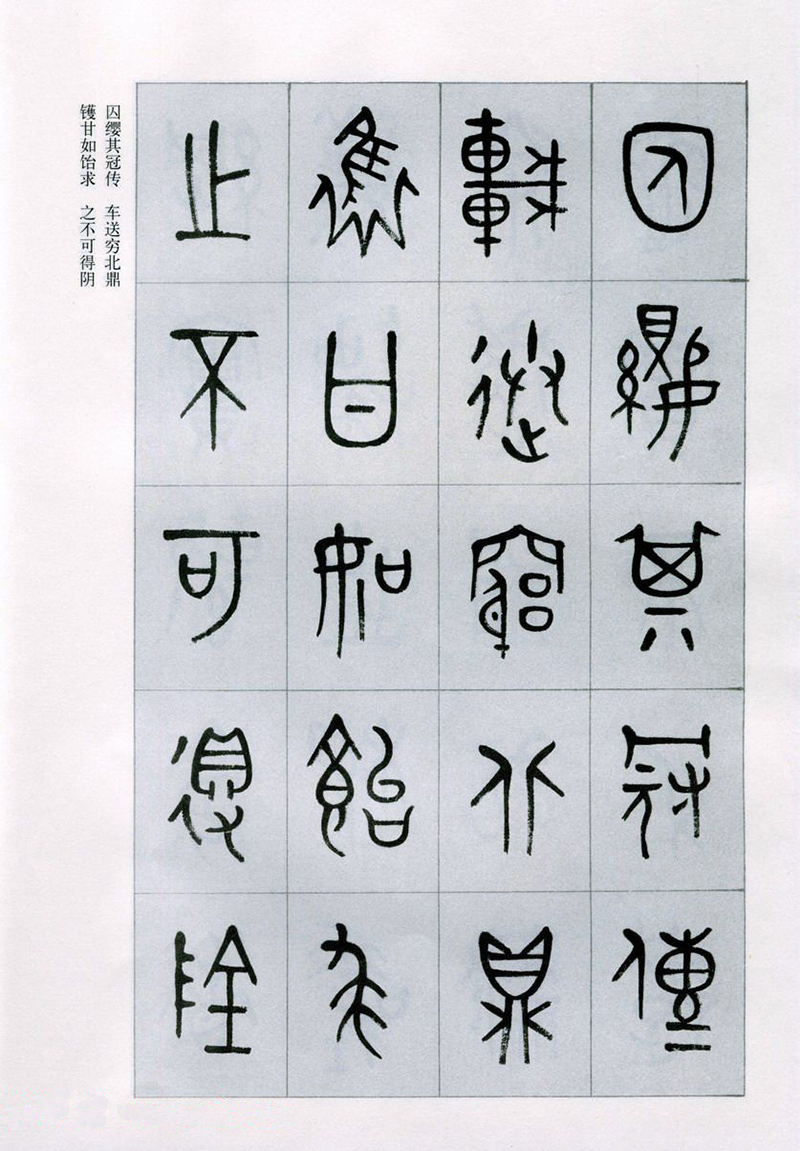 囚纓其冠傳
車送窮北鼎
鑊甘如飴求
之不可得陰
囚缨其冠传 车送穷北鼎
镬甘如饴求 之不可得阴